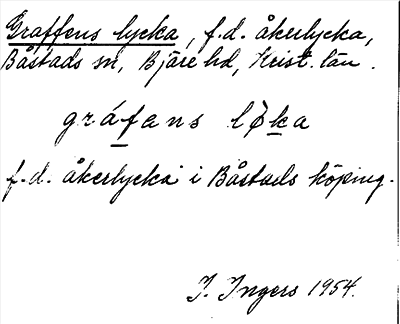 Graffens lycka, f.d. åkerlycka,
Båstads sn, Bjäre hd, Krist. län.
gráfans lǿka
f.d. åkerlycka i Båstads köping.
I. Ingers 1954.